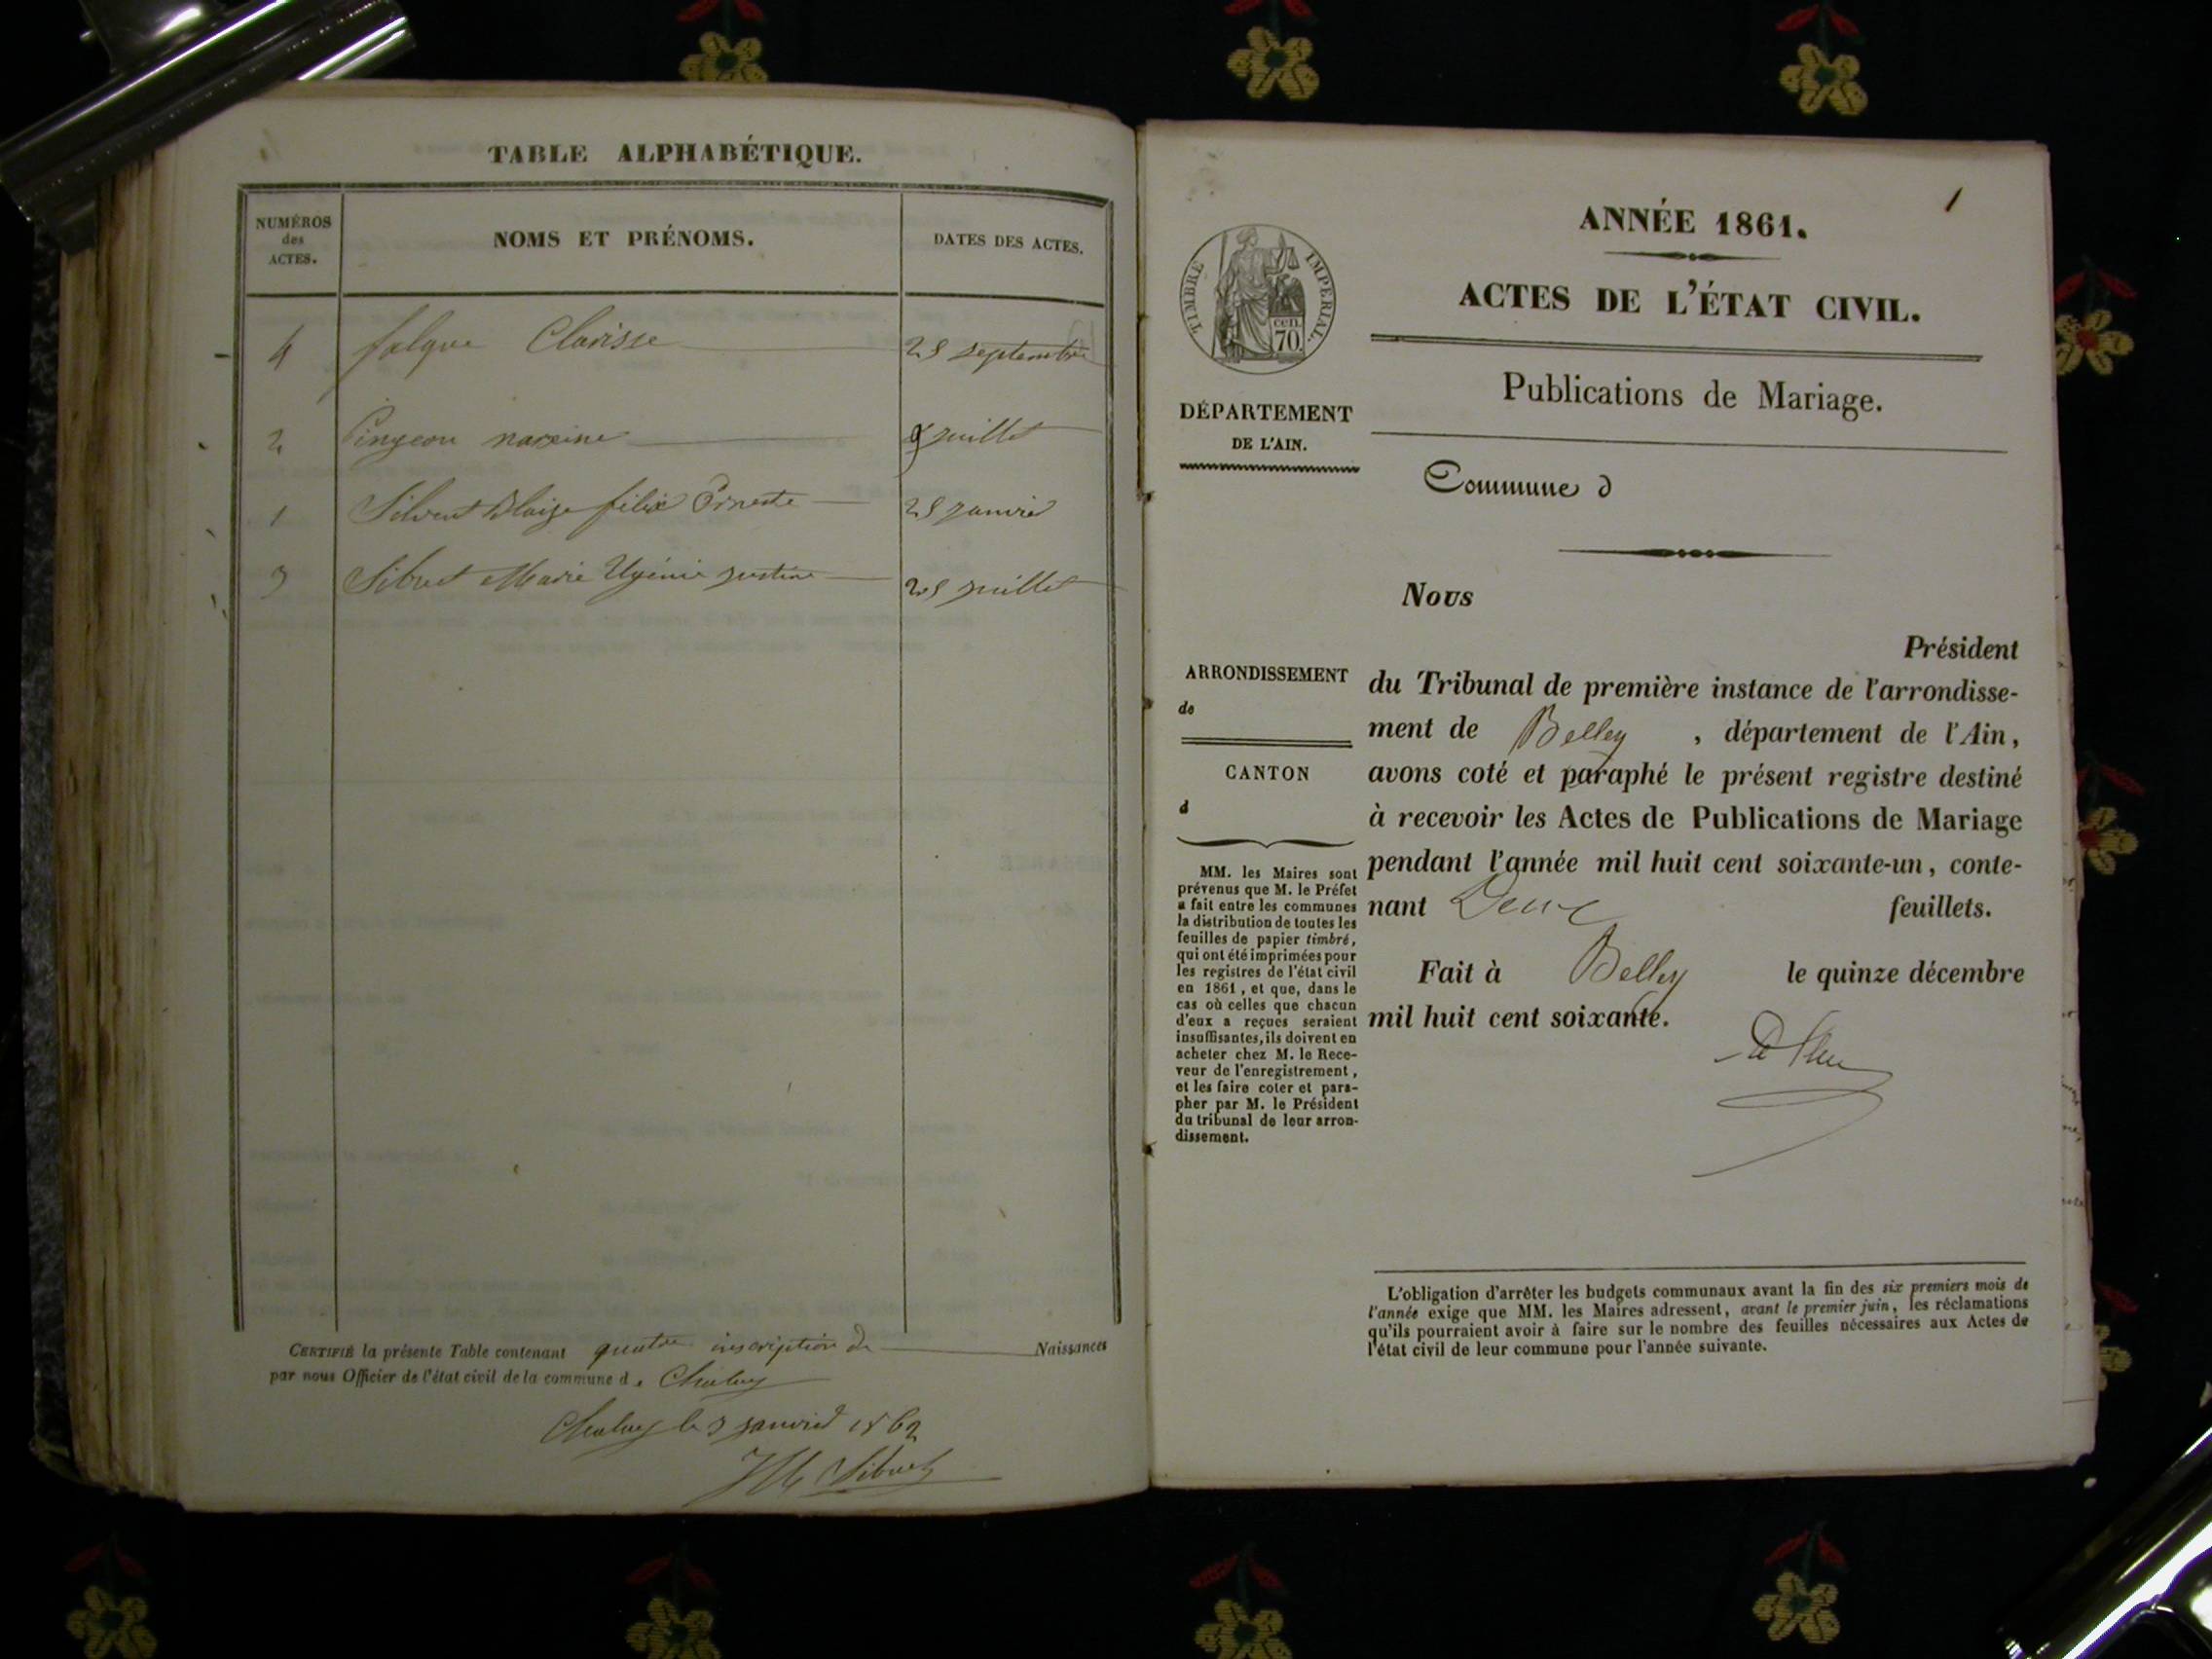 TABLE ALPHABÉTIQUE.
NUMÉROS
des
ACTES.
NOMS ET PRÉNOMS.
DATES DES ACTES.
4 falque Clarisse 28 septembre
2 Pingeon 9 juillet
1 Felix Erneste 28 janvier
3 Sibuet Marie Ugénie justine 28 juillet
CERTIFIÉ la présente Table contenant quatre inscription de Naissances
par nous Officier de l'état civil de la commune d
le 3 janvier 1862
Sibuet
1
ANNÉE 1861.
ACTES DE L'ÉTAT CIVIL.
Publications de Mariage.
Commune d
TIMBRE IMPERIAL.
cen.
70.
DÉPARTEMENT
DE L'AIN.
ARRONDISSEMENT
de
CANTON
d
MM. les Maires sont
prévenus que M. le Préfet
a fait entre les communes
la distribution de toutes les
feuilles de papier timbré,
qui ont été imprimées pour
les registres de l'état civil
en 1861, et que, dans le
cas où celles que chacun
d'eux a reçues seraient
insuffisantes, ils doivent en
acheter chez M. le Rece-
veur de l'enregistrement,
et les faire coter et para-
pher par M. le Président
du tribunal de leur arron-
dissement.
Nous
Président
du Tribunal de première instance de l'arrondisse-
ment de Belley, département de l'Ain,
avons coté et paraphé le présent registre destiné
à recevoir les Actes de Publications de Mariage
pendant l'année mil huit cent soixante-un, conte-
nant Deux feuillets.
Fait à Belley le quinze décembre
mil huit cent soixante.
L'obligation d'arrêter les budgets communaux avant la fin des six premiers mois de
l'année exige que MM. les Maires adressent, avant le premier juin, les réclamations
qu'ils pourraient avoir à faire sur le nombre des feuilles nécessaires aux Actes de
l'état civil de leur commune pour l'année suivante.